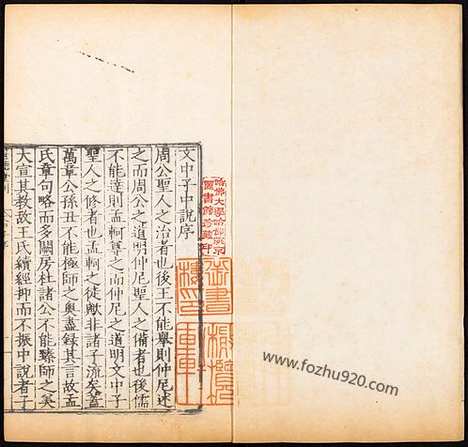 文中子中說序
周公聖人之治者也後王不能舉則仲尼述
之而周公之道明仲尼聖人之備者也後儒
不能達則孟軻尊之而仲尼之道明文中子
聖人之修者也孟軻之徒歟非諸子流矣蓋
萬章公孫丑不能極師之奧盡錄其言故孟
氏章句略而多闕房杜諸公不能臻師之美
大宣其教故王氏續經抑而不振中說者子
哈佛大學哈佛燕京
圖書館珍藏印
www.fozhu920.com